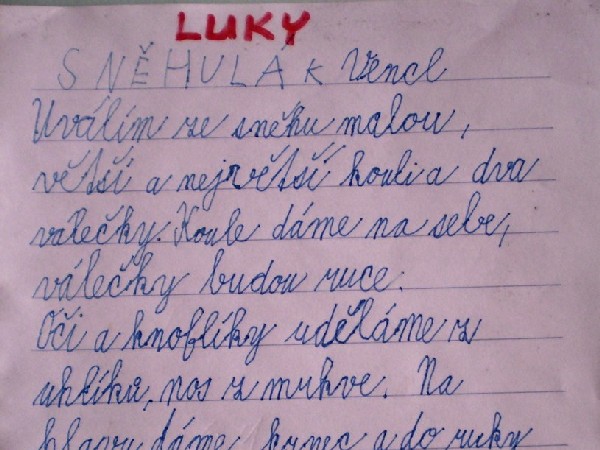 LUKY
SNĚHULÁK Vencl
Uválím ze sněhu malou,
větší a největší kouli a dva
válečky. Koule dáme na sebe,
válečky budou ruce.
Oči a knoflíky uděláme z
uhlíku, nos z mrkve. Na
hlavu dáme hrnec a do ruky